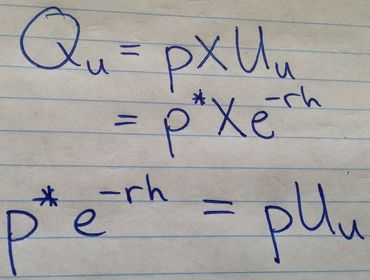 Qᵤ = p X Uᵤ
= p* X e^-rh
p* e^-rh = p Uᵤ